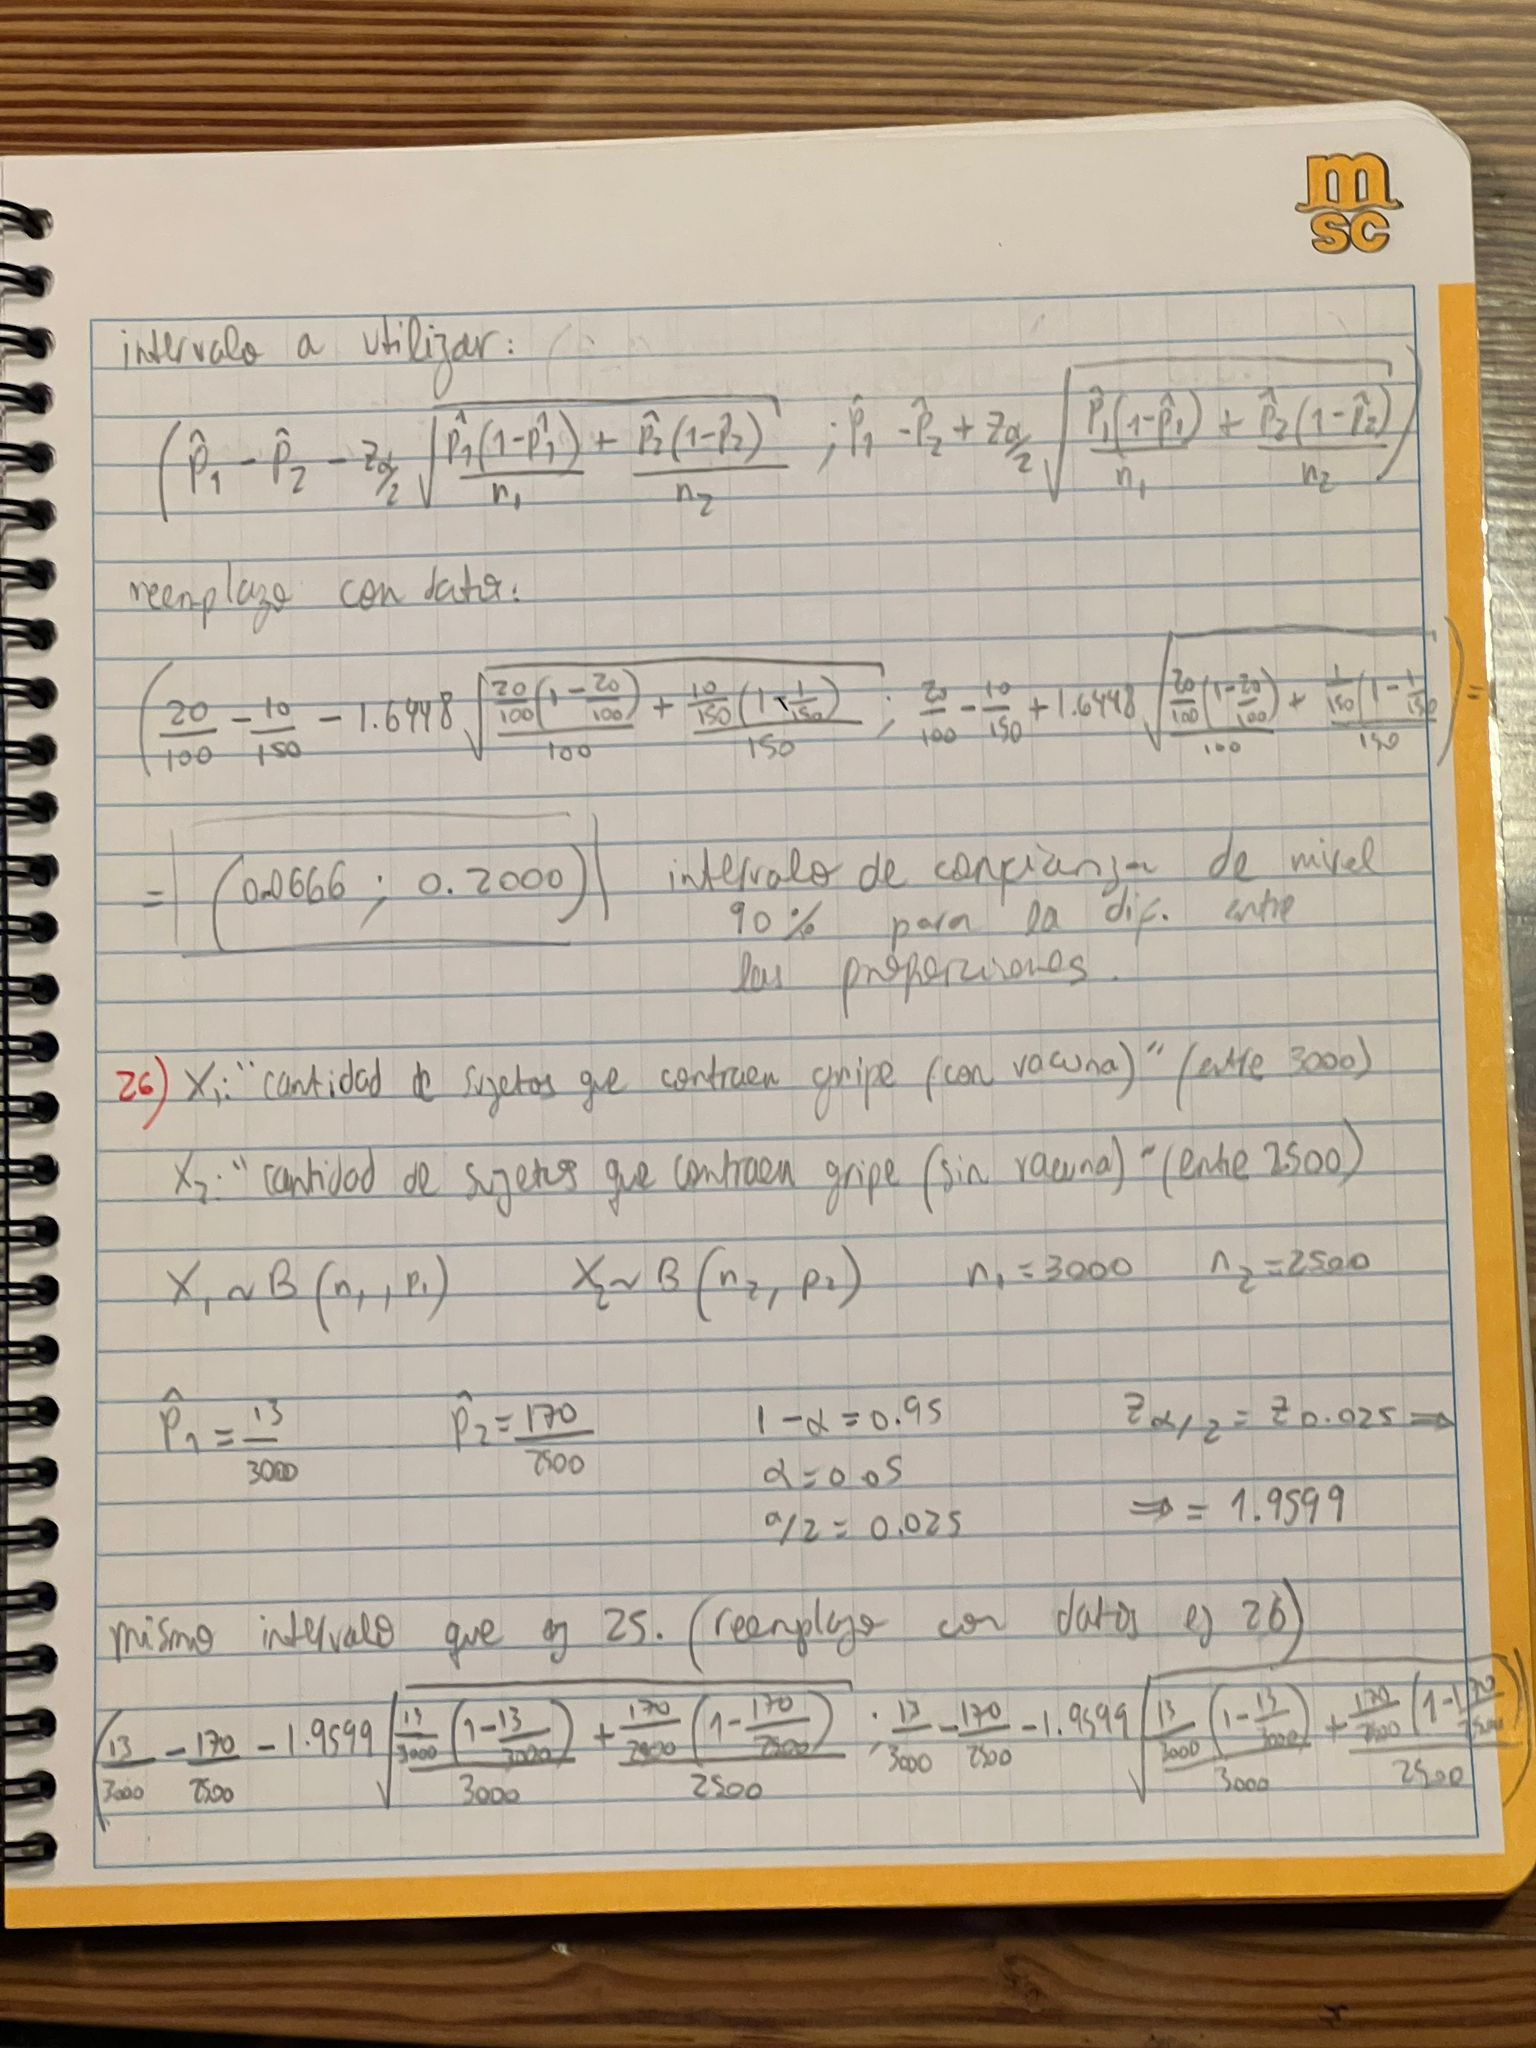 m
sc
intervalo a utilizar:
(p̂₁ - p̂₂ - z_α/₂ √(p̂₁(1-p̂₁)/n₁ + p̂₂(1-p̂₂)/n₂) ; p̂₁ - p̂₂ + z_α/₂ √(p̂₁(1-p̂₁)/n₁ + p̂₂(1-p̂₂)/n₂))
reemplazo con datos:
(20/100 - 10/150 - 1.6448 √(20/100(1-20/100)/100 + 10/150(1-1/150)/150) ; 20/100 - 10/150 + 1.6448 √(20/100(1-20/100)/100 + 1/150(1-1/150)/150)) =
= (0.0666 ; 0.2000) intervalo de confianza de nivel
90% para la dif. entre
las proporciones.
26) X₁: "cantidad de sujetos que contraen gripe (con vacuna)" (entre 3000)
X₂: "cantidad de sujetos que contraen gripe (sin vacuna)" (entre 2500)
X₁ ~ B(n₁, p₁) X₂ ~ B(n₂, p₂) n₁ = 3000 n₂ = 2500
p̂₁ = 13/3000 p̂₂ = 170/2500 1-α = 0.95 z_α/2 = z_0.025 ⇒
α = 0.05
α/2 = 0.025 ⇒ = 1.9599
mismo intervalo que ej 25. (reemplazo con datos ej 26)
(13/3000 - 170/2500 - 1.9599 √(13/3000(1-13/3000)/3000 + 170/2500(1-170/2500)/2500) ; 13/3000 - 170/2500 - 1.9599 √(13/3000(1-13/3000)/3000 + 170/2500(1-170/2500)/2500))